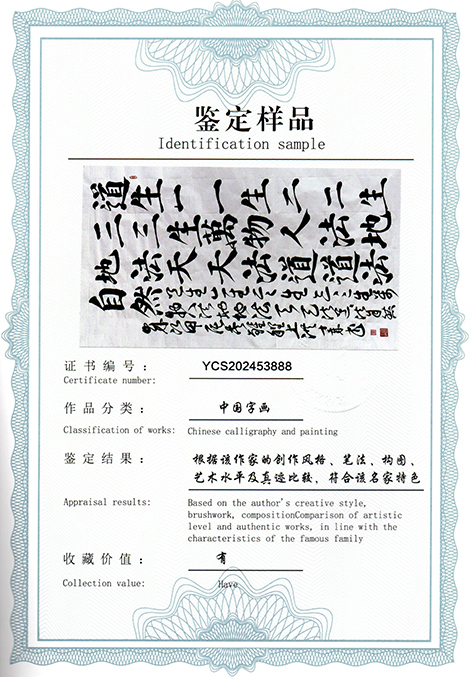 鉴定样品
Identification sample
道生一一生二二生
三三生萬物人法地
地法天天法道道法
自然
证书编号： YCS202453888
Certificate number:
作品分类： 中国字画
Classification of works: Chinese calligraphy and painting
鉴定结果： 根据该作家的创作风格、笔法、构图、
艺术水平及真迹比较，符合该名家特色
Appraisal results: Based on the author's creative style,
brushwork, compositionComparison of artistic
level and authentic works, in line with the
characteristics of the famous family
收藏价值： 有
Collection value: Have